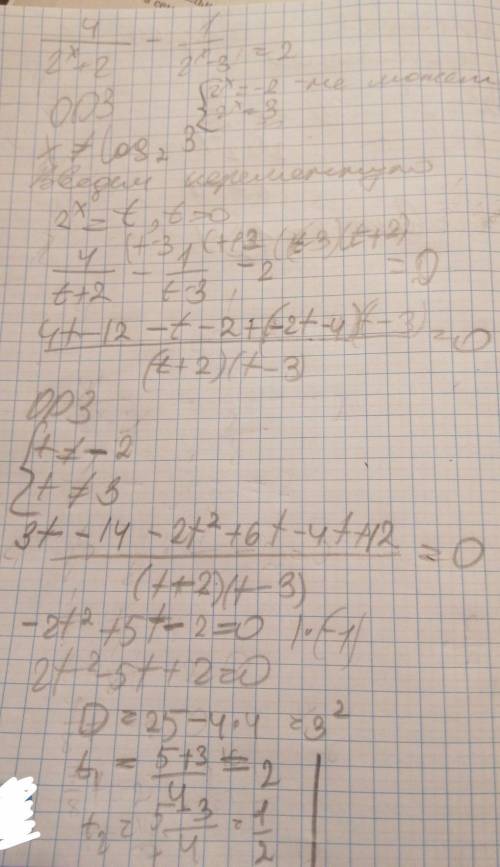 4/(2ˣ+2) - 1/(2ˣ-3) = 2
ОДЗ { 2ˣ=-2 - не может
2ˣ=3
x ≠ log₂ 3
Введем переменную
2ˣ = t, t=0
4/(t+2) (t-3 - 1/(t-3) (t+2 - 2 (t-3)(t+2) = 0
(4t-12-t-2+(-2t-4)(t-3))/((t+2)(t-3)) = 0
ОДЗ
{ t ≠ -2
t ≠ 3
(3t-14-2t²+6t-4t+12)/((t+2)(t-3)) = 0
-2t²+5t-2=0 |·(-1)
2t²-5t+2=0
D = 25-4·4 = 3²
t₁ = (5+3)/4 = 2
t₂ = (5-3)/4 = 1/2